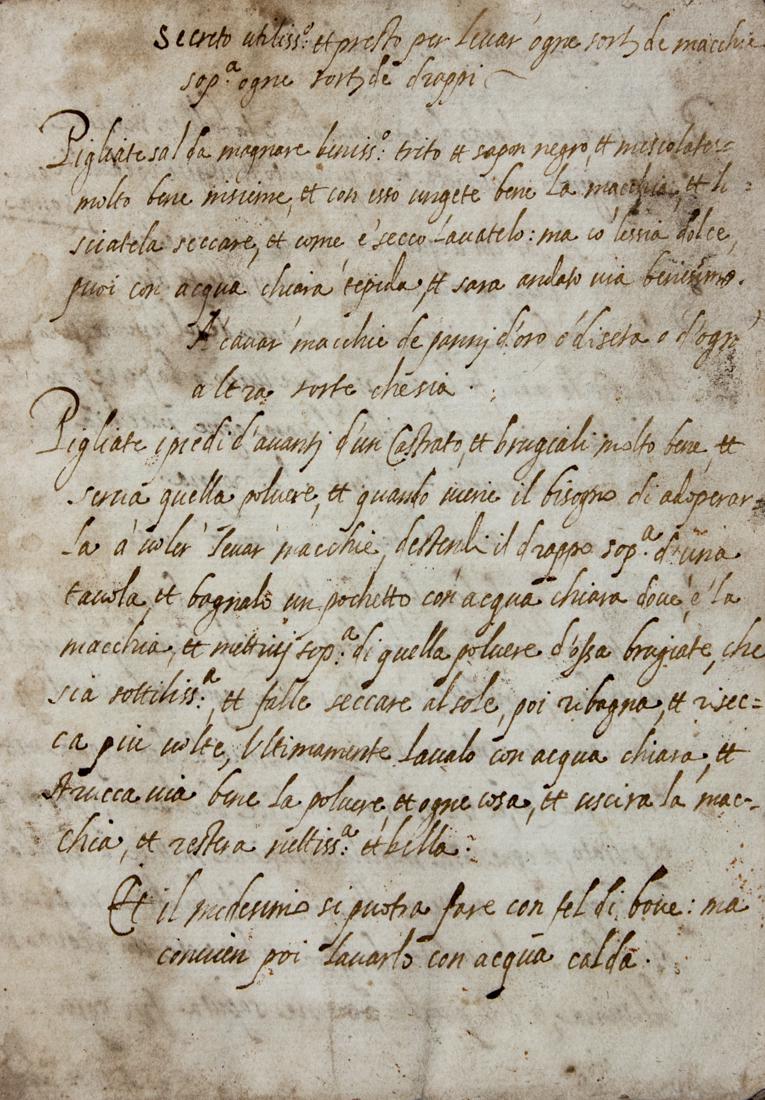 Secreto utiliss.º et presto per levar' ogne sorte de macchie
sop.ª ogne sorte de drappi
Pigliate sal da magnare beniss.º trito et sapon negro, et mescolate=
molto bene insieme, et con esso ungete bene la macchia, et li=
sciatela seccare, et come e' secco lavatelo: ma co' lessia dolce,
puoi con acqua chiara tepida, et sara andato via benissimo.
A' cavar' macchie de pannj d'oro o' di seta o d'ogni
altra sorte che sia.
Pigliate i piedi d'avantj d'un Castrato, et brugiali molto bene, et
serva quella polvere, et quando viene il bisogno di adoperar=
la à voler' levar' macchie, destendi il drappo sop.ª d'una
tavola, et bagnalo un pochetto con acqua chiara dove è la
macchia, et mettivj sop.ª di quella polvere d'ossa brugiate, che
sia sottiliss.ª, et falle seccare al sole, poi ribagna, et risec=
ca piu volte, Ultimamente lavalo con acqua chiara, et
strucca via bene la polvere, et ogne cosa, et uscira la mac=
chia, et restera nettiss.ª et bella.
Et il medesimo si potra fare con fel di bove: ma
convien poi lavarlo con acqua calda.